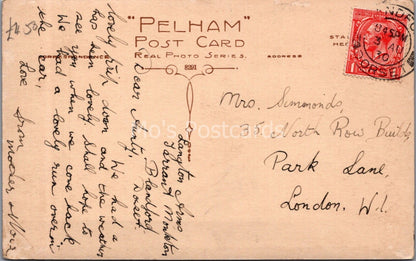 "PELHAM"
POST CARD
REAL PHOTO SERIES.
CORRESPONDENCE
ADDRESS
£4.50
Langton Arms
Tarrant Monkton
Blandford
Dorset.
Dear Aunty,
We had a
lovely trip down and the weather
has been lovely. Shall hope to
see you when we come back
We had a lovely run over in
the car,
Love from
Mrs. Simmonds,
35 North Row Builds
Park Lane,
London. W.1.
DORSET
Mo's Postcards